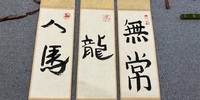 無常
龍
人馬